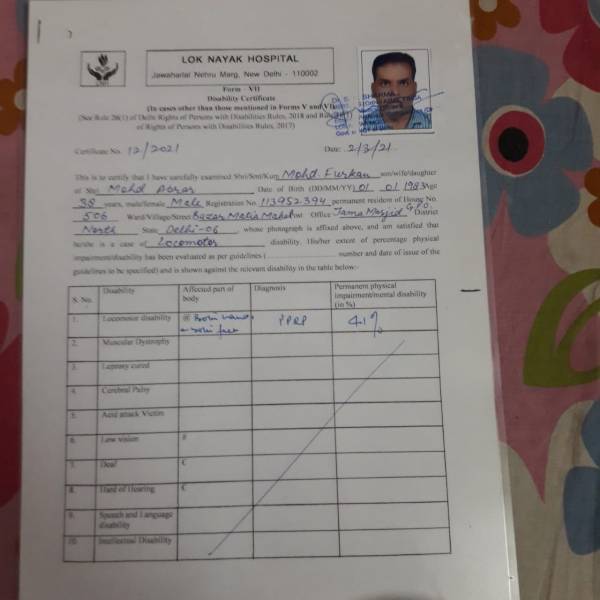 LOK NAYAK HOSPITAL
Jawaharlal Nehru Marg, New Delhi - 110002
Form - VII
Disability Certificate
(In cases other than those mentioned in Forms V and VI)
(See Rule 26(1) of Delhi Rights of Persons with Disabilities Rules, 2018 and Rule
of Rights of Persons with Disabilities Rules, 2017)
Certificate No. 12/2021 Date: 2/3/21
This is to certify that I have carefully examined Shri/Smt/Kum Mohd. Furkan son/wife/daughter
of Shri Mohd Abrar Date of Birth (DD/MM/YY) 01 01 1983 Age
38 years, male/female Male Registration No. 113952394 permanent resident of House No.
506 Ward/Village/Street Bazar Matia Mahal Post Office Jama Masjid G.P.O. District
North State Delhi-06, whose photograph is affixed above, and am satisfied that
he/she is a case of Locomotor disability. His/her extent of percentage physical
impairment/disability has been evaluated as per guidelines ( number and date of issue of the
guidelines to be specified) and is shown against the relevant disability in the table below:-
S. No. Disability Affected part of body Diagnosis Permanent physical impairment/mental disability (in %)
1. Locomotor disability @ PPRP 41%
2. Muscular Dystrophy
3. Leprosy cured
4. Cerebral Palsy
5. Acid attack Victim
6. Low vision #
7. Deaf €
8. Hard of Hearing €
9. Speech and Language disability
10. Intellectual Disability